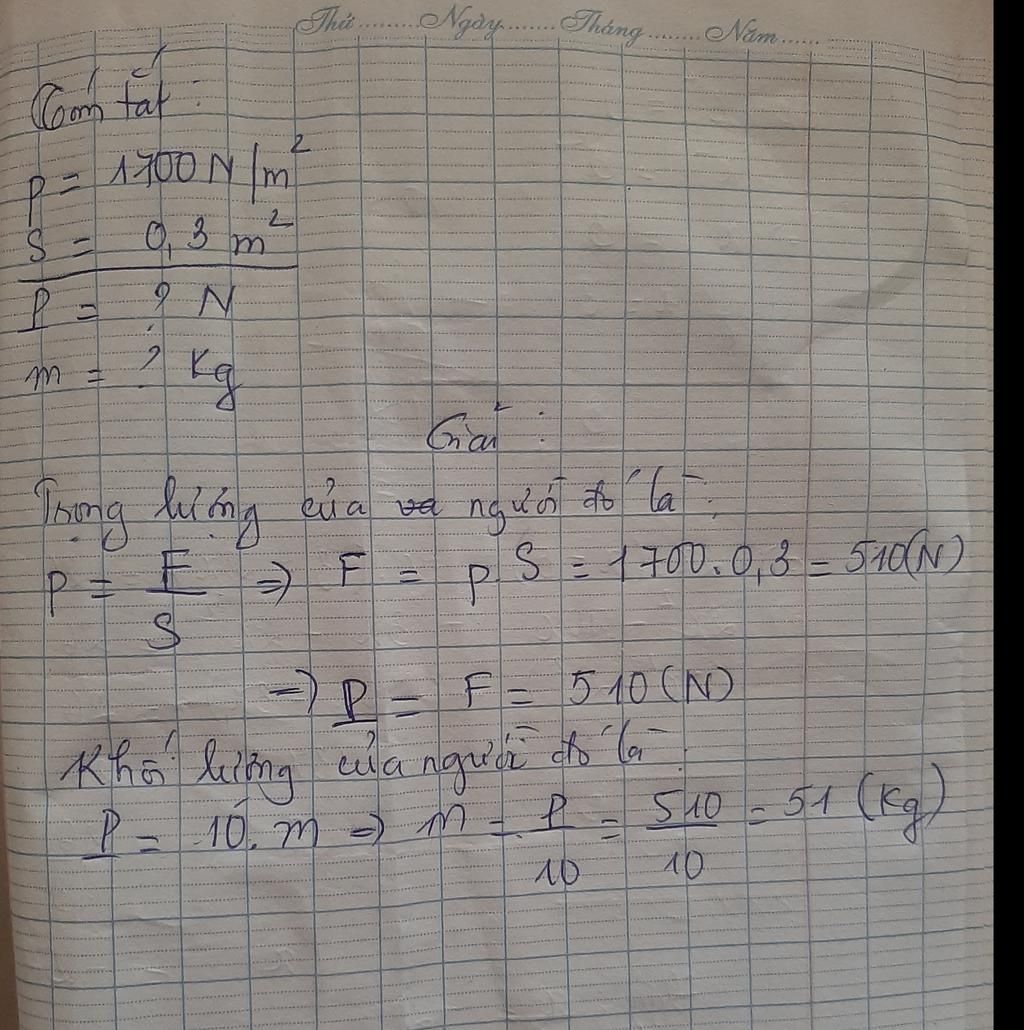 Thứ........Ngày........Tháng........Năm......
Tóm tắt :
p = 1700 N/m²
S = 0,3 m²
P = ? N
m = ? Kg
Giải :
Trọng lượng của người đó là :
p = F/S => F = p.S = 1700.0,3 = 510(N)
=> P = F = 510(N)
Khối lượng của người đó là :
P = 10.m => m = P/10 = 510/10 = 51 (Kg)